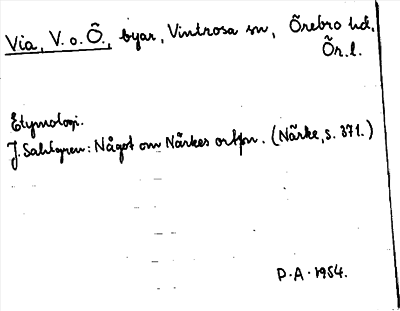 Via, V. o. Ö., byar, Vintrosa sn, Örebro hd,
Ör. l.
Etymologi.
J. Sahlgren: Något om Närkes ortn. (Närke, s. 371.)
P. A. 1954.